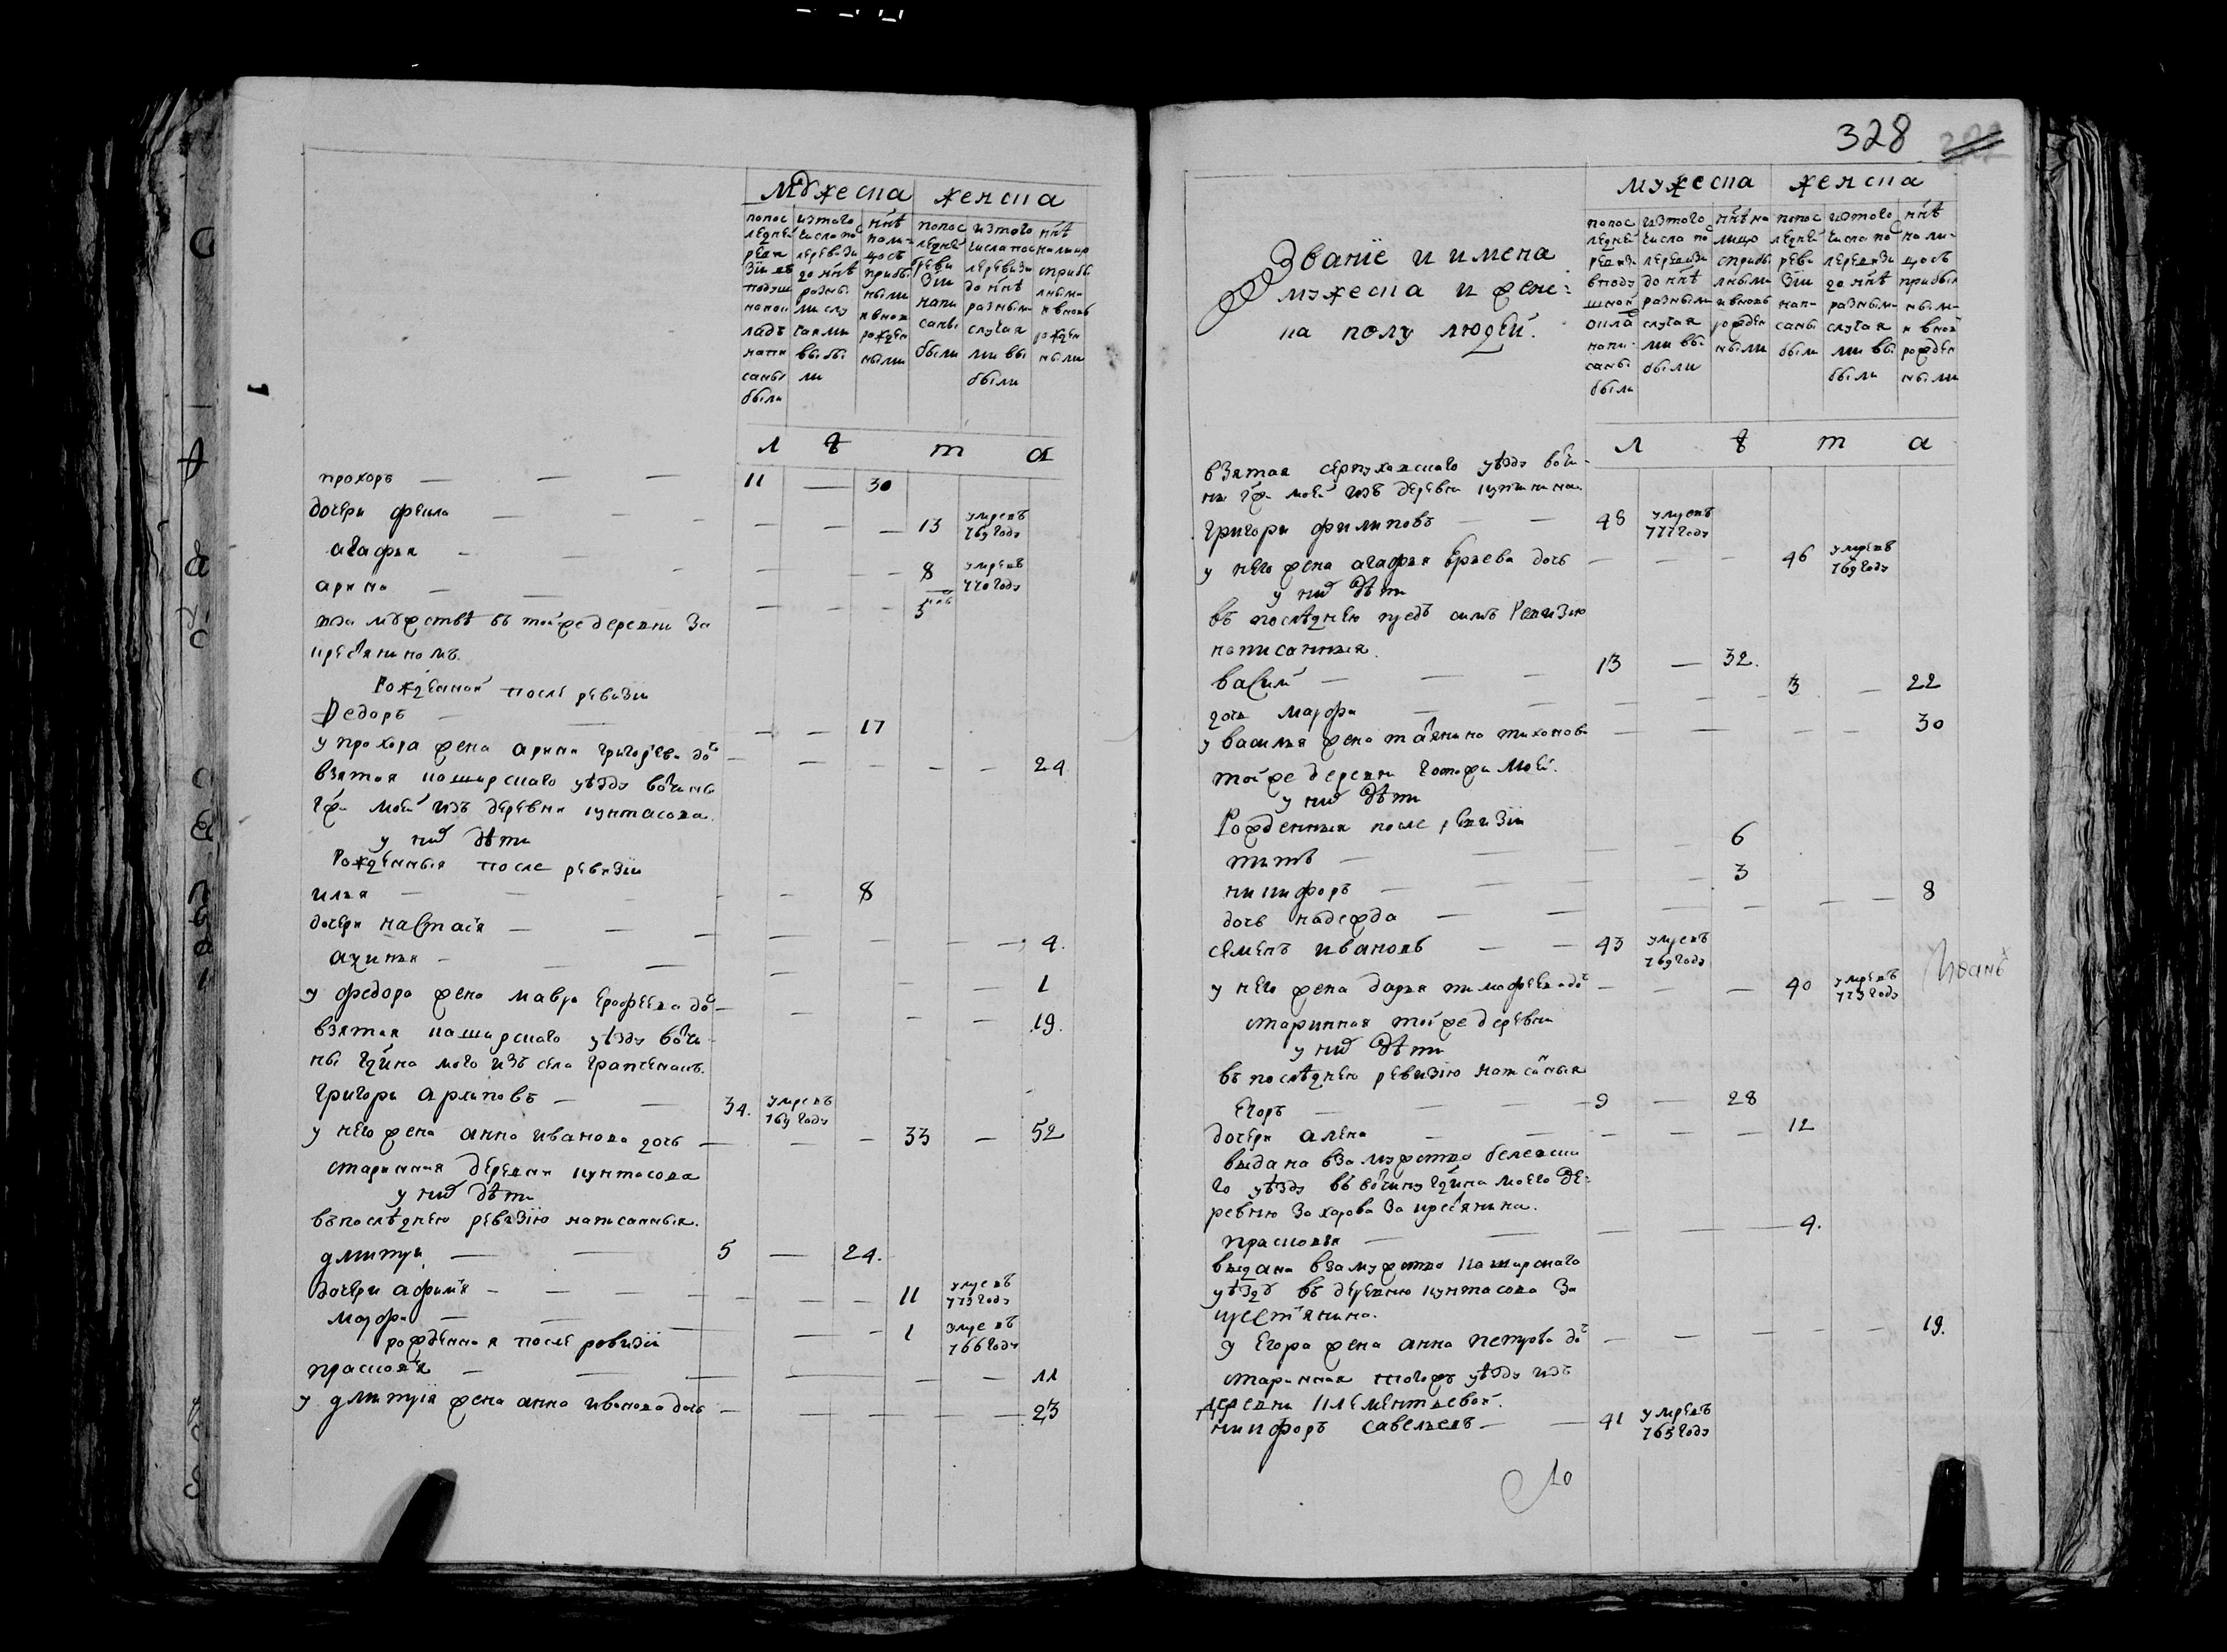 мужеска женска
попос леднеи реви зїи въ подуш номъ ок ладъ напи саны были
изтого числа по с ревизи до ннѣ разны ми слу чаями выбы ли
ннѣ нали цосъ прибы лыми и внов рожден ными
попос леднеи реви зїи напи саны были
изтого числа пос л ревизи до ннѣ разными случая ми вы были
ннѣ налицо сприбы лыми и вновь рожден ными
л ѣ т а
прохоръ — — — 11 — 30
дочери фекла — — — 13 умре въ 769 году
агафья — — — 8 умре въ 770 году
арина — — — 5
въза мужствѣ въ тойже деревни за
крестянином.
Рожденной после ревизїи
Федоръ — — — 17
у прохора жена арина григорьева до — — — 24
взятая каширскаго уѣзду вочины
гжи моей изъ деревни кунтасова
у них дѣти
Рожденныя после ревизїи
илья — — — 8
дочери настася — — — 4.
акилина — — — 1
у федора жена мавра ерофеева до — — — 19.
взятая каширскаго уѣзду вочи
ны гдина моего изъ села граченакъ.
григори архиповъ — — 34. умре въ 769 году
у него жена анна иванова дочь — — — 33 — 52
старинная деревни кунтасова
у них дѣти
въ послѣднею ревизїю написанныя.
дмитри — — 5 — 24.
дочери афимя — — — 11 умре въ 773 году
марфа — — — 1 умре въ 766 году
рожденная после ревизїи
прасковя — — — 11
у дмитрїя жена анна иванова дочь — — — 23
328
Званїе и имена
мужеска и жене-
ка полу людей.
мужеска женска
попос леднеи ревизи вподу шной окла напи саны были
изтого числа по леревизи до ннѣ разными случая ми вы были
ннѣ на лицо сприбы лыми и вновь рожден ными
попос леднеи реви зїи напи саны были
изтого числа по леревизи до ннѣ разными случая ми вы были
ннѣ нали цосъ прибы лыми и вновь рожден ными
л ѣ т а
взятая серпуховскаго уѣзду вочи-
ны гжи моей изъ деревни
григори филиповъ — — 48 умре въ 777 году
у него жена агафья дочь — — — 46 умре въ 769 году
у них дѣти
въ послѣднею предъ симъ ревизїю
написанныя.
васили — — — 13 — 32.
дочь марфа — — — 3 — 22
у василья жена татяна тихонова — — — 30
тойже деревни моей.
у них дѣти
Рожденныя после ревизїи
титъ — — — 6
никифоръ — — — 3
дочь надежда — — — 8
семенъ ивановъ — — 43 умре въ 769 году
у него жена дарья тимофеева до — — — 40 умре въ 773 году
старинная тойже деревни
у них дѣти
въ послѣднею ревизїю написаныя
Егоръ — — — 9 — 28
дочери алена — — — 12
выдана взамужство белевска
го уѣзду въ вочину гдина моего де-
ревню захарова за крестянина.
прасковья — — — 4.
выдана взамужство каширскаго
уѣзду въ деревню кунтасова за
крестянина.
у Егора жена анна петрова до — — — 19.
старинная тогожъ уѣзду изъ
деревни клементьевой.
никифоръ савельевъ — — 41 умре въ 765 году